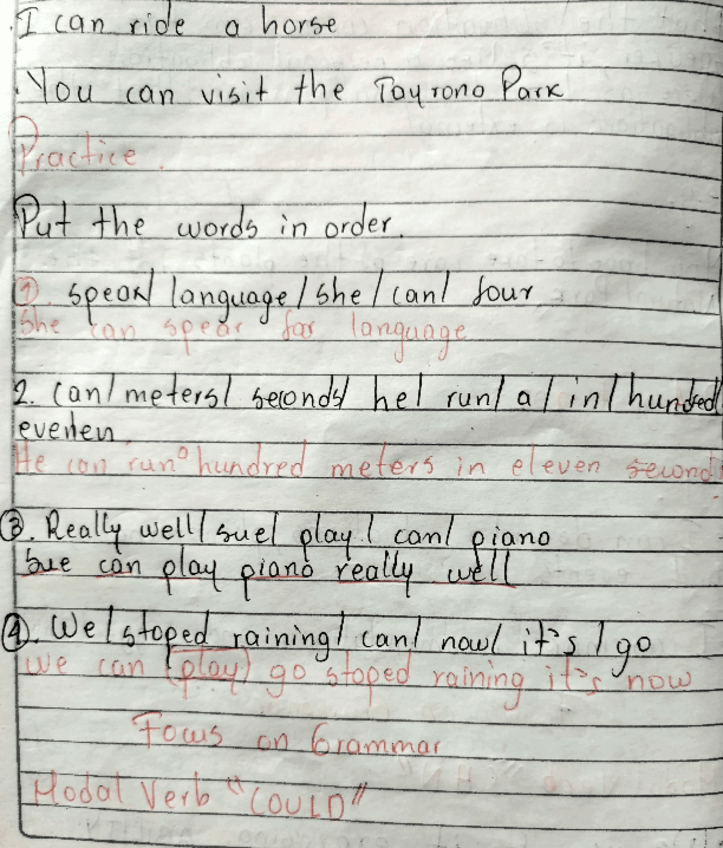 I can ride a horse
You can visit the Tayrono Park
Practice.
Put the words in order.
1. speak/ language/ she/ can/ four
She can spear for language
2. Can/ meters/ seconds/ he/ run/ a/ in/ hundred
eveven
He can run a hundred meters in eleven seconds
3. Really well/ sue/ play/ can/ piano
Sue can play piano really well
4. We/ stoped raining/ can/ now/ it's/ go
We can (play) go stoped raining it's now
Focus on Grammar
Modal Verb "COULD"